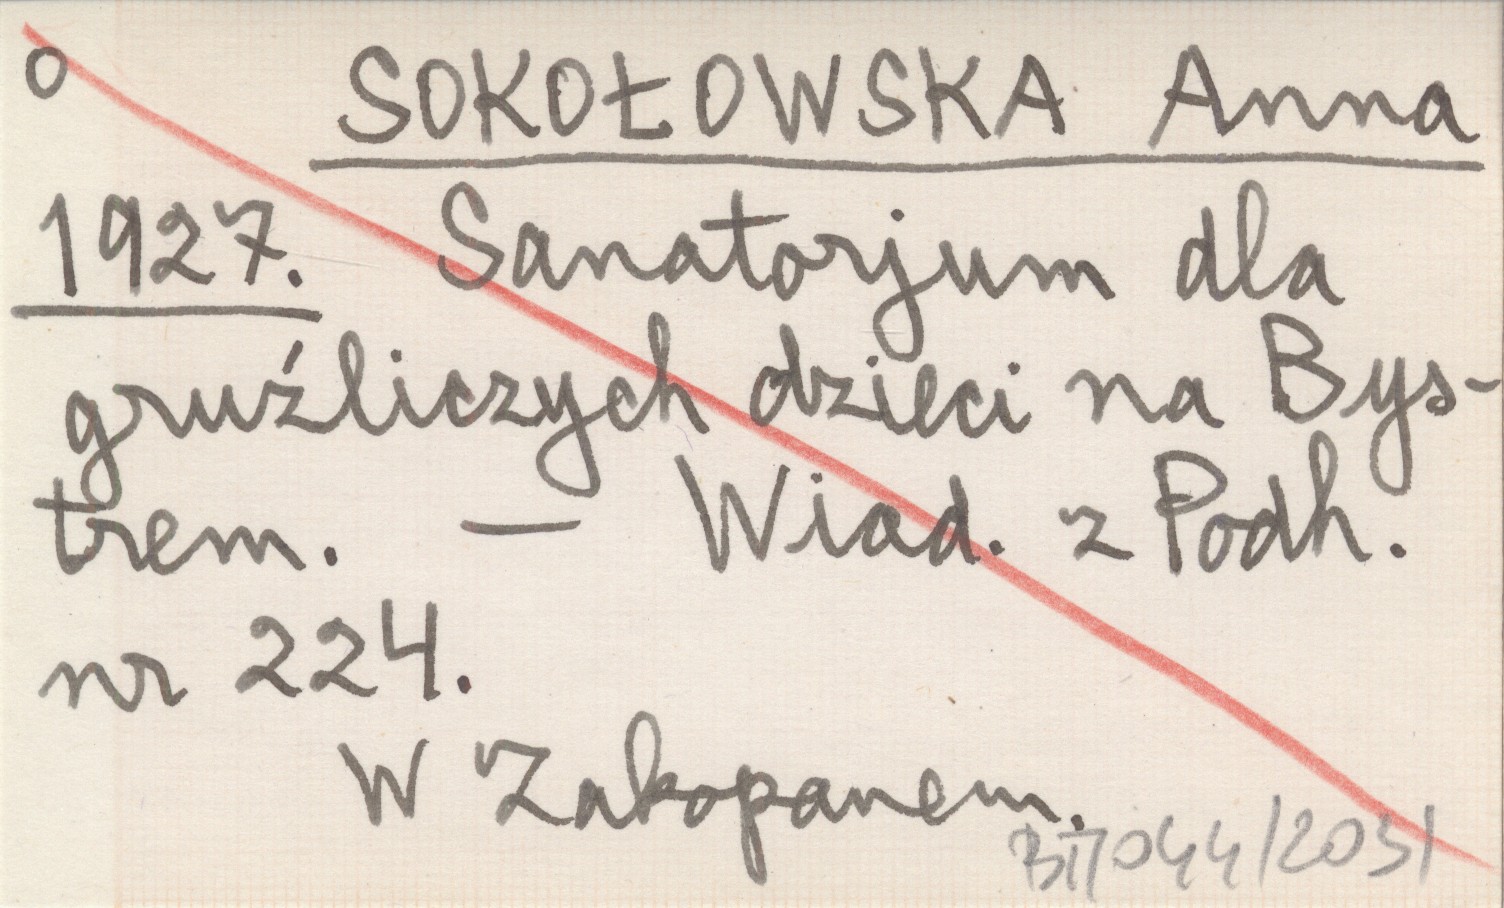 o SOKOŁOWSKA Anna
1927. Sanatorjum dla
gruźliczych dzieci na Bys-
trem. — Wiad. z Podh.
nr 224.
W Zakopanem.
/044/2031